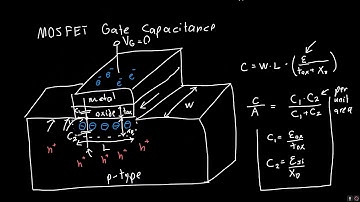 MOSFET Gate Capacitance
V_G=0
e⁻ e⁻
e⁻ e⁻
metal
oxide
t_ox
L
W
h⁺ h⁺ h⁺
h⁺ h⁺ h⁺
p-type
C = W·L·(ε / (t_ox + X_D))
C/A = C₁·C₂ / (C₁+C₂) per unit area
C₁ = ε_ox / t_ox
C₂ = ε_si / X_D